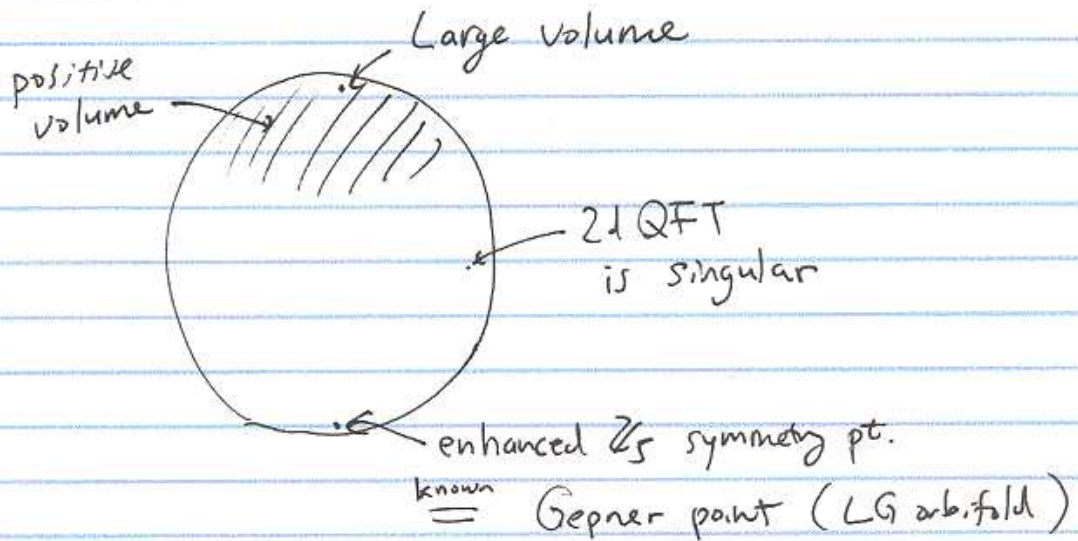 Large volume
positive
volume
2d QFT
is singular
enhanced ℤ₅ symmetry pt.
known
= Gepner point (LG orbifold)